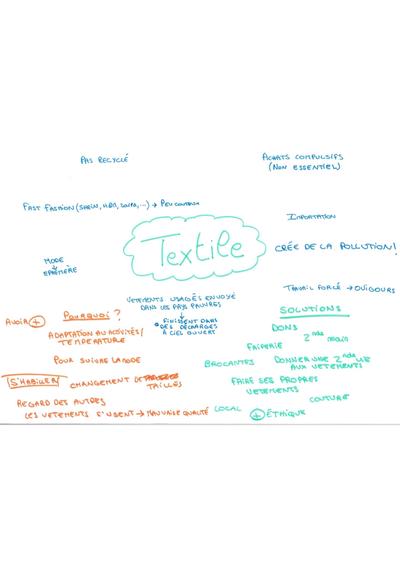 PAS RECYCLÉ
ACHATS COMPULSIFS
(NON ESSENTIEL)
FAST FASHION (SHEIN, H&M, ZARA, ...) → PEU COUTEUX
IMPORTATION
Textile
CRÉE DE LA POLLUTION!
MODE
↓
EPHÉMÈRE
TRAVAIL FORCÉ → OUÏGOURS
VETEMENTS USAGÉS ENVOYÉ
DANS LES PAYS PAUVRES
↓
FINISSENT DANS
DES DÉCHARGES
À CIEL OUVERT
AVOIR +
POURQUOI ?
ADAPTATION AU ACTIVITÉS/
TEMPERATURE
POUR SUIVRE LA MODE
S'HABILLER
CHANGEMENT DE
TAILLES
REGARD DES AUTRES
LES VETEMENTS S'USENT → MAUVAISE QUALITÉ
SOLUTIONS
DONS
2nde MAIN
FRIPERIE
BROCANTES
DONNER UNE 2nde VIE
AUX VETEMENTS
FAIRE SES PROPRES
VETEMENTS
COUTURE
LOCAL
+ ÉTHIQUE